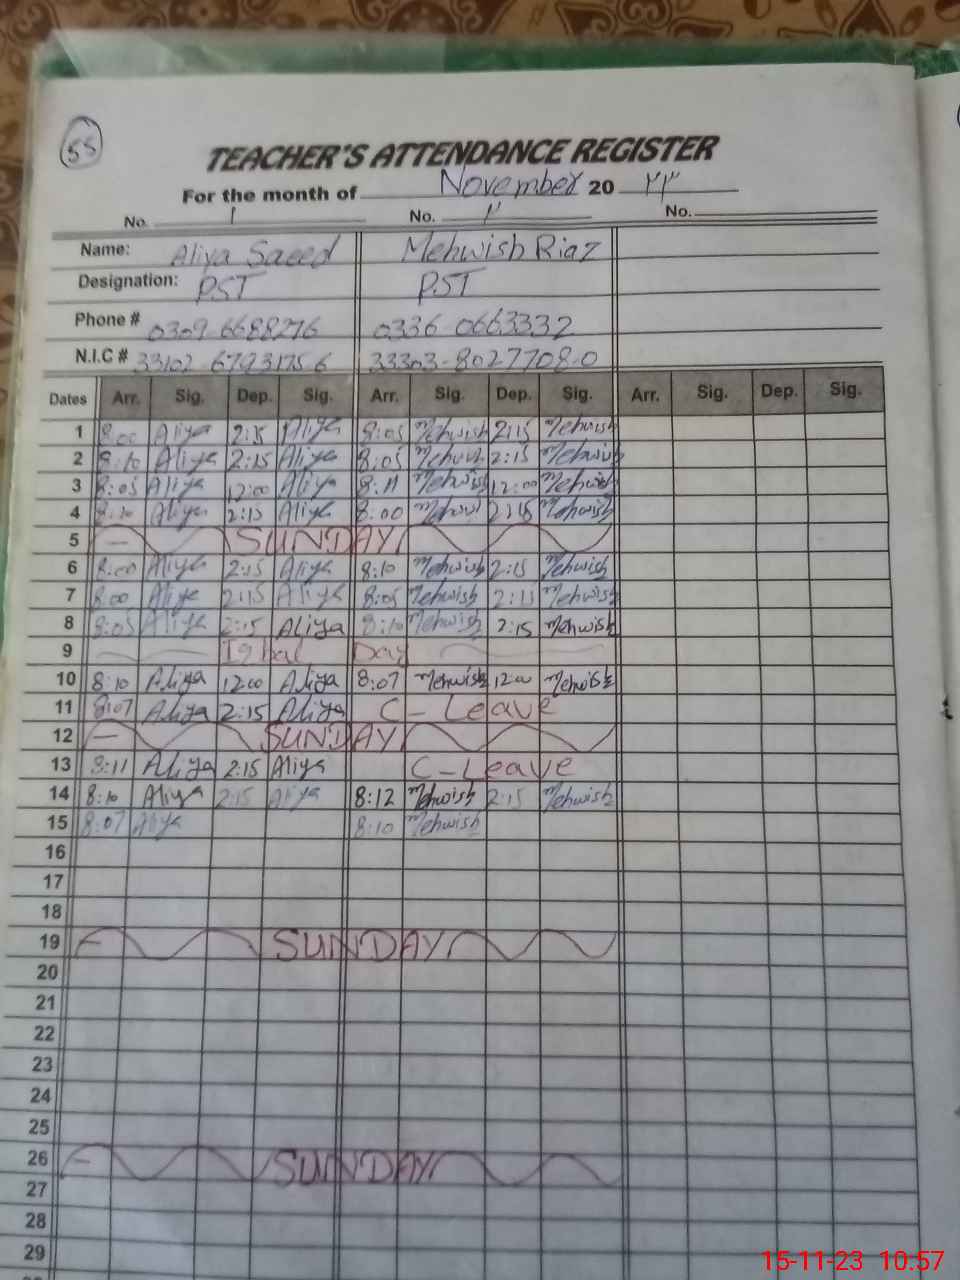 55
TEACHER'S ATTENDANCE REGISTER
For the month of November 20 ۲۳
No. ۱ No. ۲ No.
Name: Aliya Saeed Mehwish Riaz
Designation: P.ST P.ST
Phone # 0309-6688276 0336-0663332
N.I.C # 33102-6793175-6 33303-8027708-0
Dates Arr. Sig. Dep. Sig. Arr. Sig. Dep. Sig. Arr. Sig. Dep. Sig.
1 8:00 Aliya 2:15 Aliya 8:05 Mehwish 2:15 Mehwish
2 8:10 Aliya 2:15 Aliya 8:05 Mehwish 2:15 Mehwish
3 8:05 Aliya 12:00 Aliya 8:11 Mehwish 12:00 Mehwish
4 8:10 Aliya 2:15 Aliya 8:00 Mehwish 2:15 Mehwish
5 SUNDAY
6 8:00 Aliya 2:15 Aliya 8:10 Mehwish 2:15 Mehwish
7 8:00 Aliya 2:15 Aliya 8:05 Mehwish 2:15 Mehwish
8 8:05 Aliya 2:15 Aliya 8:10 Mehwish 2:15 Mehwish
9 Iqbal Day
10 8:10 Aliya 12:00 Aliya 8:07 Mehwish 12:00 Mehwish
11 8:07 Aliya 2:15 Aliya C-Leave
12 SUNDAY
13 8:11 Aliya 2:15 Aliya C-Leave
14 8:10 Aliya 2:15 Aliya 8:12 Mehwish 2:15 Mehwish
15 8:07 Aliya 8:10 Mehwish
16
17
18
19 SUNDAY
20
21
22
23
24
25
26 SUNDAY
27
28
29
15-11-23 10:57